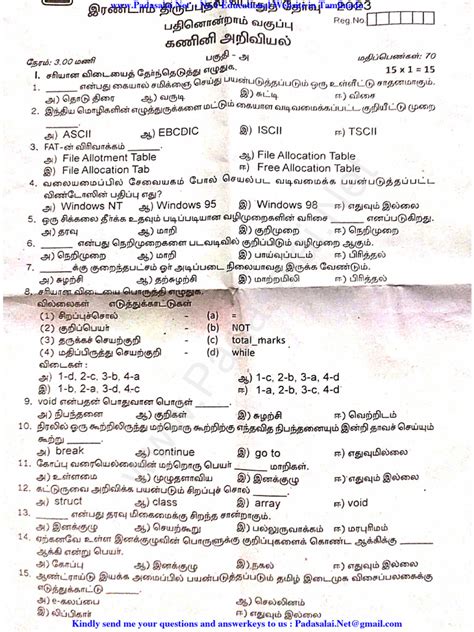 www.Padasalai.Net
இரண்டாம் திருப்புதல் 2023
பதினொன்றாம் வகுப்பு
Reg.No
கணினி அறிவியல்
நேரம்: 3.00 மணி பகுதி - அ மதிப்பெண்கள்: 70
I. சரியான விடையைத் தேர்ந்தெடுத்து எழுதுக. 15 x 1 = 15
1. ______ என்பது கையால் சமிக்ஞை செய்து பயன்படுத்தப்படும் ஒரு உள்ளீட்டு சாதனமாகும்.
அ) தொடு திரை ஆ) வருடி இ) சுட்டி ஈ) விசை
2. இந்திய மொழிகளின் எழுத்துருக்களை மட்டும் கையாள வடிவமைக்கப்பட்ட குறியீட்டு முறை
______
அ) ASCII ஆ) EBCDIC இ) ISCII ஈ) TSCII
3. FAT-ன் விரிவாக்கம் ______.
அ) File Allotment Table ஆ) File Allocation Table
இ) File Allocation Tab ஈ) Free Allocation Table
4. வலையமைப்பில் சேவையகம் போல் செயல்பட வடிவமைக்க பயன்படுத்தப்பட்ட
விண்டோஸின் பதிப்பு எது?
அ) Windows NT ஆ) Windows 95 இ) Windows 98 ஈ) எதுவும் இல்லை
5. ஒரு சிக்கலை தீர்க்க உதவும் படிப்படியான வழிமுறைகளின் வரிசை ______ எனப்படுகிறது.
அ) தரவு ஆ) மாறி இ) குறிமுறை ஈ) நெறிமுறை
6. ______ என்பது நெறிமுறைகளை படவடிவில் குறிப்பிடும் வழிமுறை ஆகும்.
அ) நெறிமுறை ஆ) மாறி இ) பாய்வுப்படம் ஈ) பிரித்தல்
7. ______க்கு குறைந்தபட்சம் ஓர் அடிப்படை நிலையாவது இருக்க வேண்டும்.
அ) சுழற்சி ஆ) தற்சுழற்சி இ) மாற்றமிலி ஈ) பிரித்தல்
8. சரியான விடையை பொருத்தி எழுதுக.
வில்லைகள் எடுத்துக்காட்டுகள்
(1) சிறப்புச்சொல் - (a) =
(2) குறிப்பெயர் - (b) NOT
(3) தருக்கச் செயற்குறி - (c) total_marks
(4) மதிப்பிருத்து செயற்குறி - (d) while
விடைகள் :
அ) 1-d, 2-c, 3-b, 4-a ஆ) 1-c, 2-b, 3-a, 4-d
இ) 1-b, 2-a, 3-d, 4-c ஈ) 1-a, 2-b, 3-c, 4-d
9. void என்பதன் பொதுவான பொருள் ______.
அ) நிபந்தனை ஆ) குறிகள் இ) சுழற்சி ஈ) வெற்றிடம்
10. நிரலில் ஒரு கூற்றிலிருந்து மற்றொரு கூற்றிற்கு எந்தவித நிபந்தனையும் இன்றி தாவச் செய்யும்
கூற்று ______.
அ) break ஆ) continue இ) go to ஈ) எதுவுமில்லை
11. கோப்பு வரையெல்லையின் மற்றொரு பெயர் ______ மாறிகள்.
அ) உள்ளமை ஆ) முழுதளாவிய இ) இனக்குழு ஈ) எதுவுமில்லை
12. கட்டுருவை அறிவிக்க பயன்படும் சிறப்புச் சொல் ______.
அ) struct ஆ) class இ) array ஈ) void
13. ______ என்பது தரவு மிகைமைக்கு சிறந்த சான்றாகும்.
அ) இனக்குழு ஆ) செயற்கூறு இ) பல்லுருவாக்கம் ஈ) மரபுரிமம்
14. ஏற்கனவே உள்ள இனக்குழுவின் பொருளுக்கு குறிப்புகளைக் கொண்ட ஆக்கிக்கு ______
ஆக்கி என்று பெயர்.
அ) கோப்பு ஆ) இனக்குழு இ) நகல் ஈ) எதுவுமில்லை
15. ஆண்ட்ராய்டு இயக்க அமைப்பில் பயன்படுத்தப்படும் தமிழ் இடைமுக விசைப்பலகைக்கு
எடுத்துக்காட்டு ______.
அ) எ-கலப்பை ஆ) செல்லினம்
இ) லிப்பிசினி ஈ) எதுவுமில்லை
Kindly send me your questions and answerkeys to us : Padasalai.Net@gmail.com